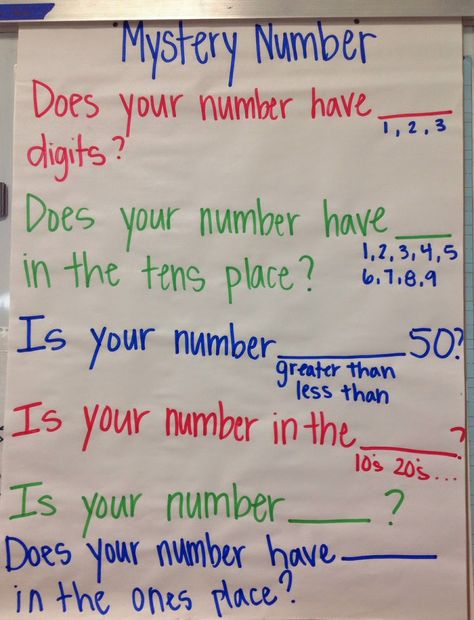 Mystery Number
Does your number have ____
1, 2, 3
digits?
Does your number have ____
1, 2, 3, 4, 5
in the tens place?
6, 7, 8, 9
Is your number ____ 50?
greater than
less than
Is your number in the ____?
10's 20's...
Is your number ____?
Does your number have ____
in the ones place?